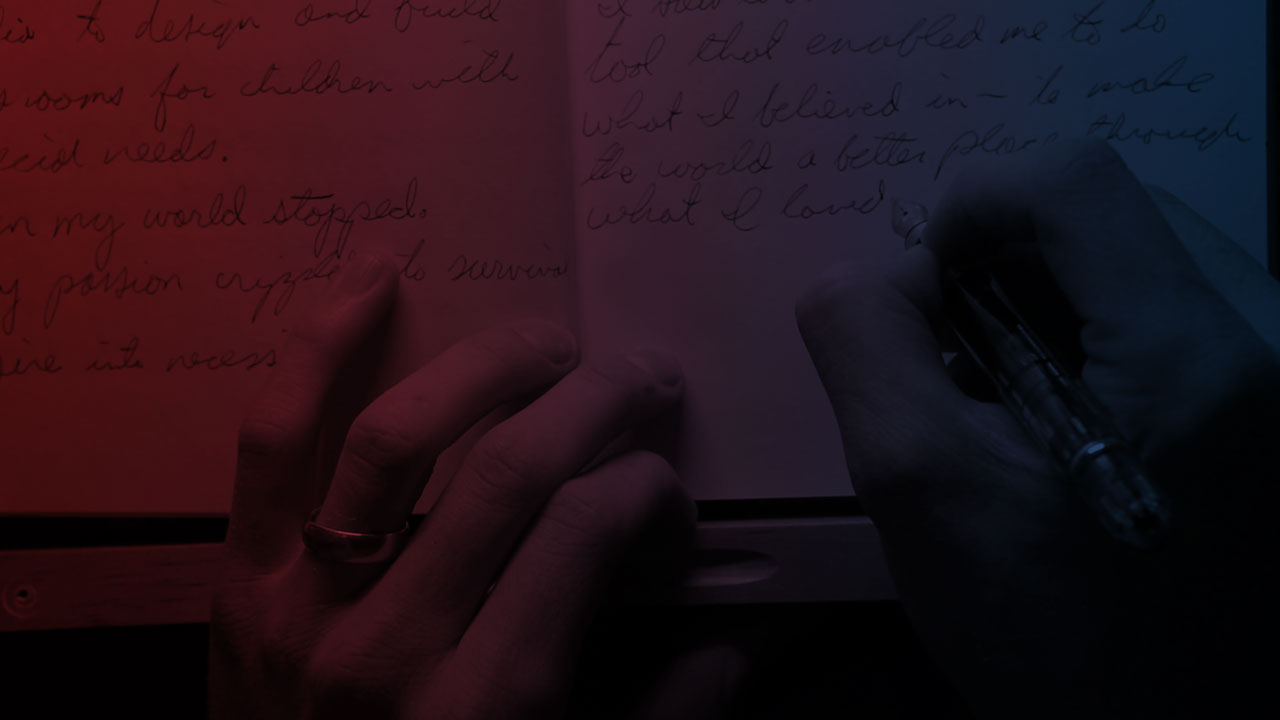 to design and build
rooms for children with
needs.
my world stopped.
passion to survival
into
tool that enabled me to do
what I believed in - to make
the world a better place through
what I loved